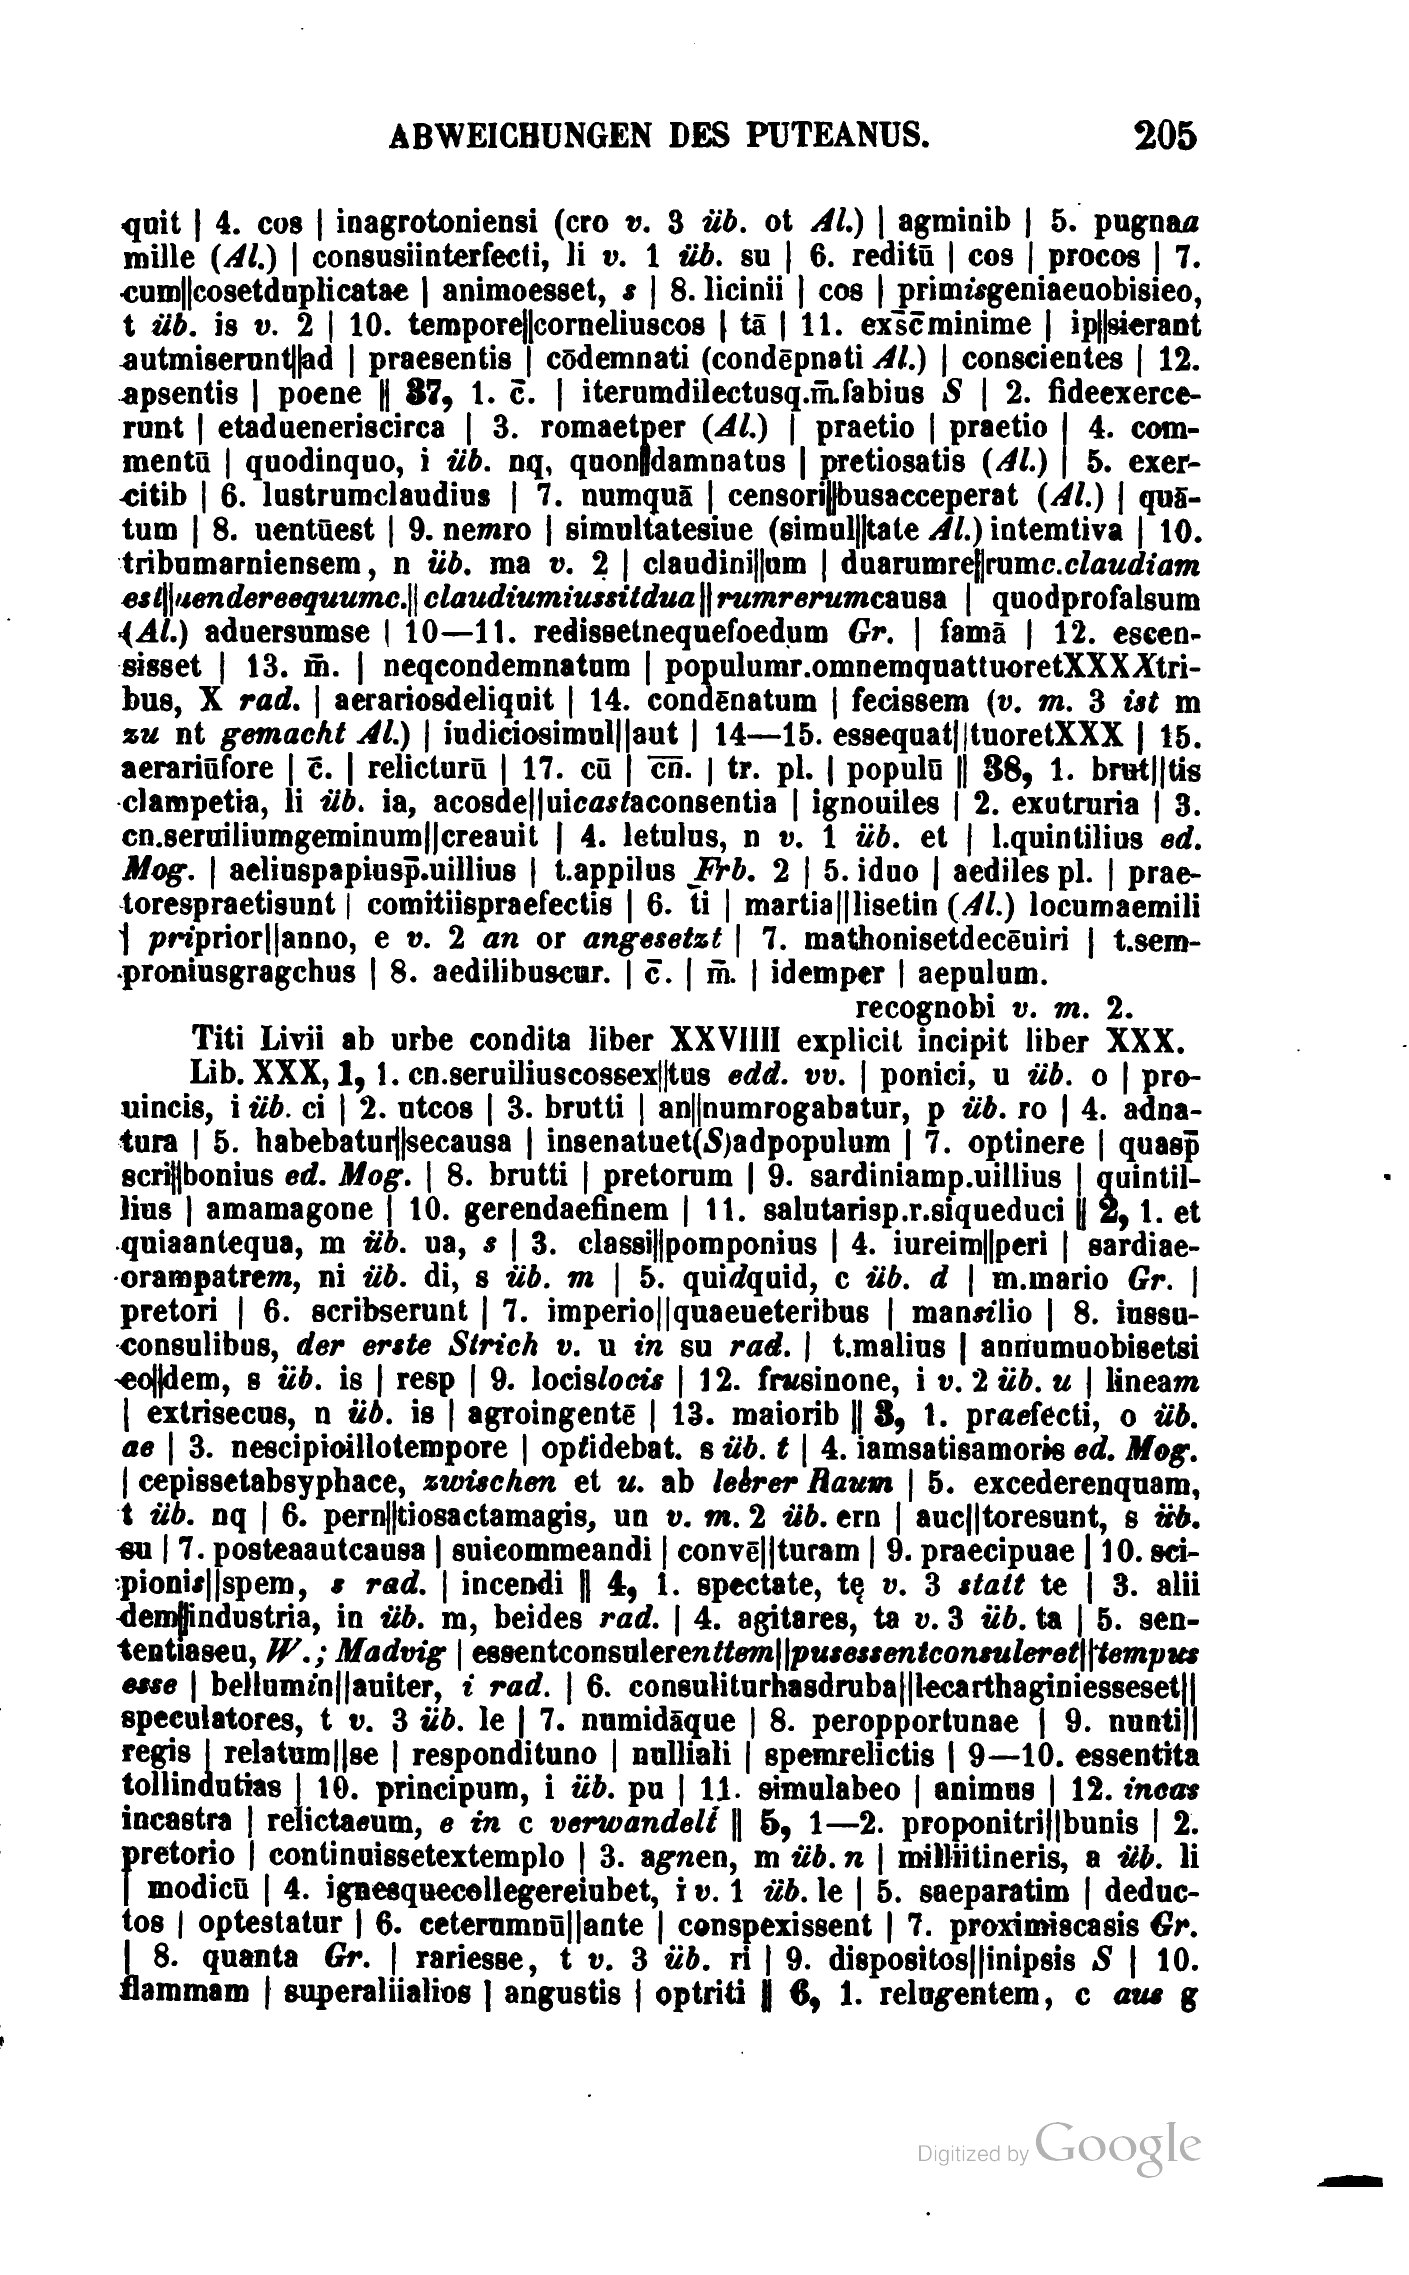 ABWEICHUNGEN DES PUTEANUS. 205
quit | 4. cos | inagrotoniensi (cro v. 3 üb. ot Al.) | agminib | 5. pugnaa
mille (Al.) | consusiinterfecti, li v. 1 üb. su | 6. reditū | cos | procos | 7.
cum||cosetduplicatae | animoesset, s | 8. licinii | cos | primisgeniaeuobisieo,
t üb. is v. 2 | 10. tempore||corneliuscos | tā | 11. exs̄c̄minime | ip||sierant
autmiserunt||ad | praesentis | cōdemnati (condēpnati Al.) | conscientes | 12.
apsentis | poene || 37, 1. c̄. | iterumdilectusq.m̄.fabius S | 2. fideexerce-
runt | etadueneriscirca | 3. romaetper (Al.) | praetio | praetio | 4. com-
mentū | quodinquo, i üb. nq, quon||damnatus | pretiosatis (Al.) | 5. exer-
citib | 6. lustrumclaudius | 7. numquā | censori||busacceperat (Al.) | quā-
tum | 8. uentūest | 9. nemro | simultatesiue (simul||tate Al.) intemtiva | 10.
tribumarniensem, n üb. ma v. 2 | claudini||um | duarumre||rumc.claudiam
est||uendereequumc.||claudiumiussitdua||rumrerumcausa | quodprofalsum
(Al.) aduersumse | 10—11. redissetnequefoedum Gr. | famā | 12. escen-
sisset | 13. m̄. | neqcondemnatum | populumr.omnemquattuoretXXXXtri-
bus, X rad. | aerariosdeliquit | 14. condēnatum | fecissem (v. m. 3 ist m
zu nt gemacht Al.) | iudiciosimul||aut | 14—15. essequat||tuoretXXX | 15.
aerariūfore | c̄. | relicturū | 17. cū | c̄n̄. | tr. pl. | populū || 38, 1. brut||tis
clampetia, li üb. ia, acosde||uicastaconsentia | ignouiles | 2. exutruria | 3.
cn.seruiliumgeminum||creauit | 4. letulus, n v. 1 üb. et | l.quintilius ed.
Mog. | aeliuspapiusp̄.uillius | t.appilus Frb. 2 | 5. iduo | aediles pl. | prae-
torespraetisunt | comitiispraefectis | 6. ti | martia||lisetin (Al.) locumaemili
| pripriorʼ||anno, e v. 2 an or angesetzt | 7. mathonisetdecēuiri | t.sem-
proniusgragchus | 8. aedilibuscur. | c̄. | m̄. | idemper | aepulum.
recognobi v. m. 2.
Titi Livii ab urbe condita liber XXVIIII explicit incipit liber XXX.
Lib. XXX, 1, 1. cn.seruiliuscossex||tus edd. vv. | ponici, u üb. o | pro-
uincis, i üb. ci | 2. utcos | 3. brutti | an||numrogabatur, p üb. ro | 4. adna-
tura | 5. habebatur||secausa | insenatuet(S)adpopulum | 7. optinere | quasp̄
scri||bonius ed. Mog. | 8. brutti | pretorum | 9. sardiniamp.uillius | quintil-
lius | amamagone | 10. gerendaefinem | 11. salutarisp.r.siqueduci || 2, 1. et
quiaantequa, m üb. ua, s | 3. classi||pomponius | 4. iureim||peri | sardiae-
orampatrem, ni üb. di, s üb. m | 5. quidquid, c üb. d | m.mario Gr. |
pretori | 6. scribserunt | 7. imperio||quaeueteribus | mansilio | 8. iussu-
consulibus, der erste Strich v. u in su rad. | t.malius | annumuobisetsi
eo||dem, s üb. is | resp | 9. locislocis | 12. frusinone, i v. 2 üb. u | lineam
| extrisecus, n üb. is | agroingentē | 13. maiorib || 3, 1. praefecti, o üb.
ae | 3. nescipioillotempore | optidebat. s üb. t | 4. iamsatisamoris ed. Mog.
| cepissetabsyphace, zwischen et u. ab leerer Raum | 5. excederenquam,
t üb. nq | 6. pern||tiosactamagis, un v. m. 2 üb. ern | auc||toresunt, s üb.
su | 7. posteaautcausa | suicommeandi | convē||turam | 9. praecipuae | 10. sci-
pionis||spem, s rad. | incendi || 4, 1. spectate, tę v. 3 statt te | 3. alii
dem||industria, in üb. m, beides rad. | 4. agitares, ta v. 3 üb. ta | 5. sen-
tentiaseu, W.; Madvig | essentconsulerenttem||pusessentconsuleret||tempus
esse | bellumin||auiter, i rad. | 6. consuliturhasdruba||lecarthaginiesseset||
speculatores, t v. 3 üb. le | 7. numidāque | 8. peropportunae | 9. nunti||
regis | relatum||se | respondituno | nulliali | spemrelictis | 9—10. essentita
tollindutias | 10. principum, i üb. pu | 11. simulabeo | animus | 12. incas
incastra | relictaeum, e in c verwandelt || 5, 1—2. proponitri||bunis | 2.
pretorio | continuissetextemplo | 3. agnen, m üb. n | milliitineris, a üb. li
| modicū | 4. ignesquecollegereiubet, i v. 1 üb. le | 5. saeparatim | deduc-
tos | optestatur | 6. ceterumnū||ante | conspexissent | 7. proximiscasis Gr.
| 8. quanta Gr. | rariesse, t v. 3 üb. ri | 9. dispositos||inipsis S | 10.
flammam | superaliialios | angustis | optriti || 6, 1. relugentem, c aus g
Digitized by Google